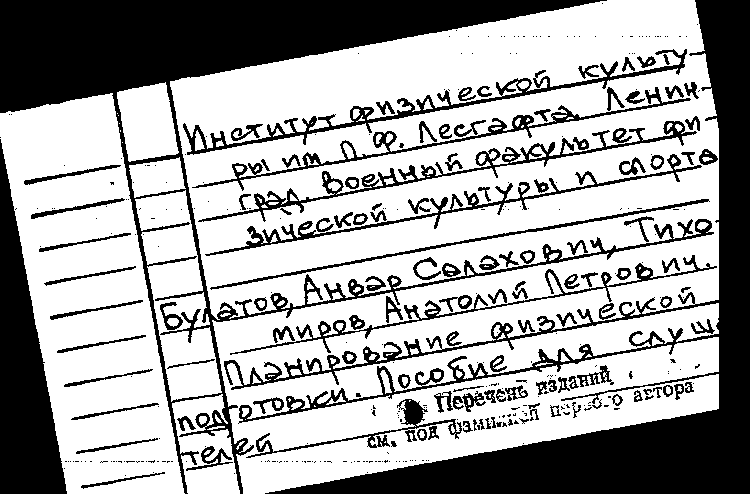 Институт физической культу-
ры им. П. Ф. Лесгафта. Ленин-
град. Военный факультет фи-
зической культуры и спорта
Булатов, Анвар Салахович, Тихо-
миров, Анатолий Петрович.
Планирование физической
подготовки. Пособие для слуш
телей
Перечень изданий
см. под фамилией первого автора